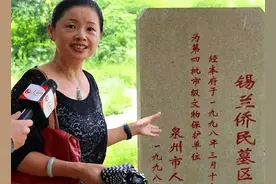 锡兰侨民墓区
经本府于一九九八年三月十
为第四批市级文物保护单位
泉州市人
一九九八